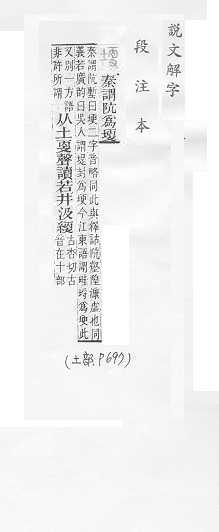 說文解字
段注本
秦謂阬爲埂
秦謂阬塹曰埂二字音略同此與釋詁阬壑隍漮虛也同
義若廣韵曰吳人謂堤封爲埂今江東語謂畦埒爲埂此
又別一方語
非許所謂
从土㪅聲讀若井汲綆
古杏切古
音在十部
(土部.P697)